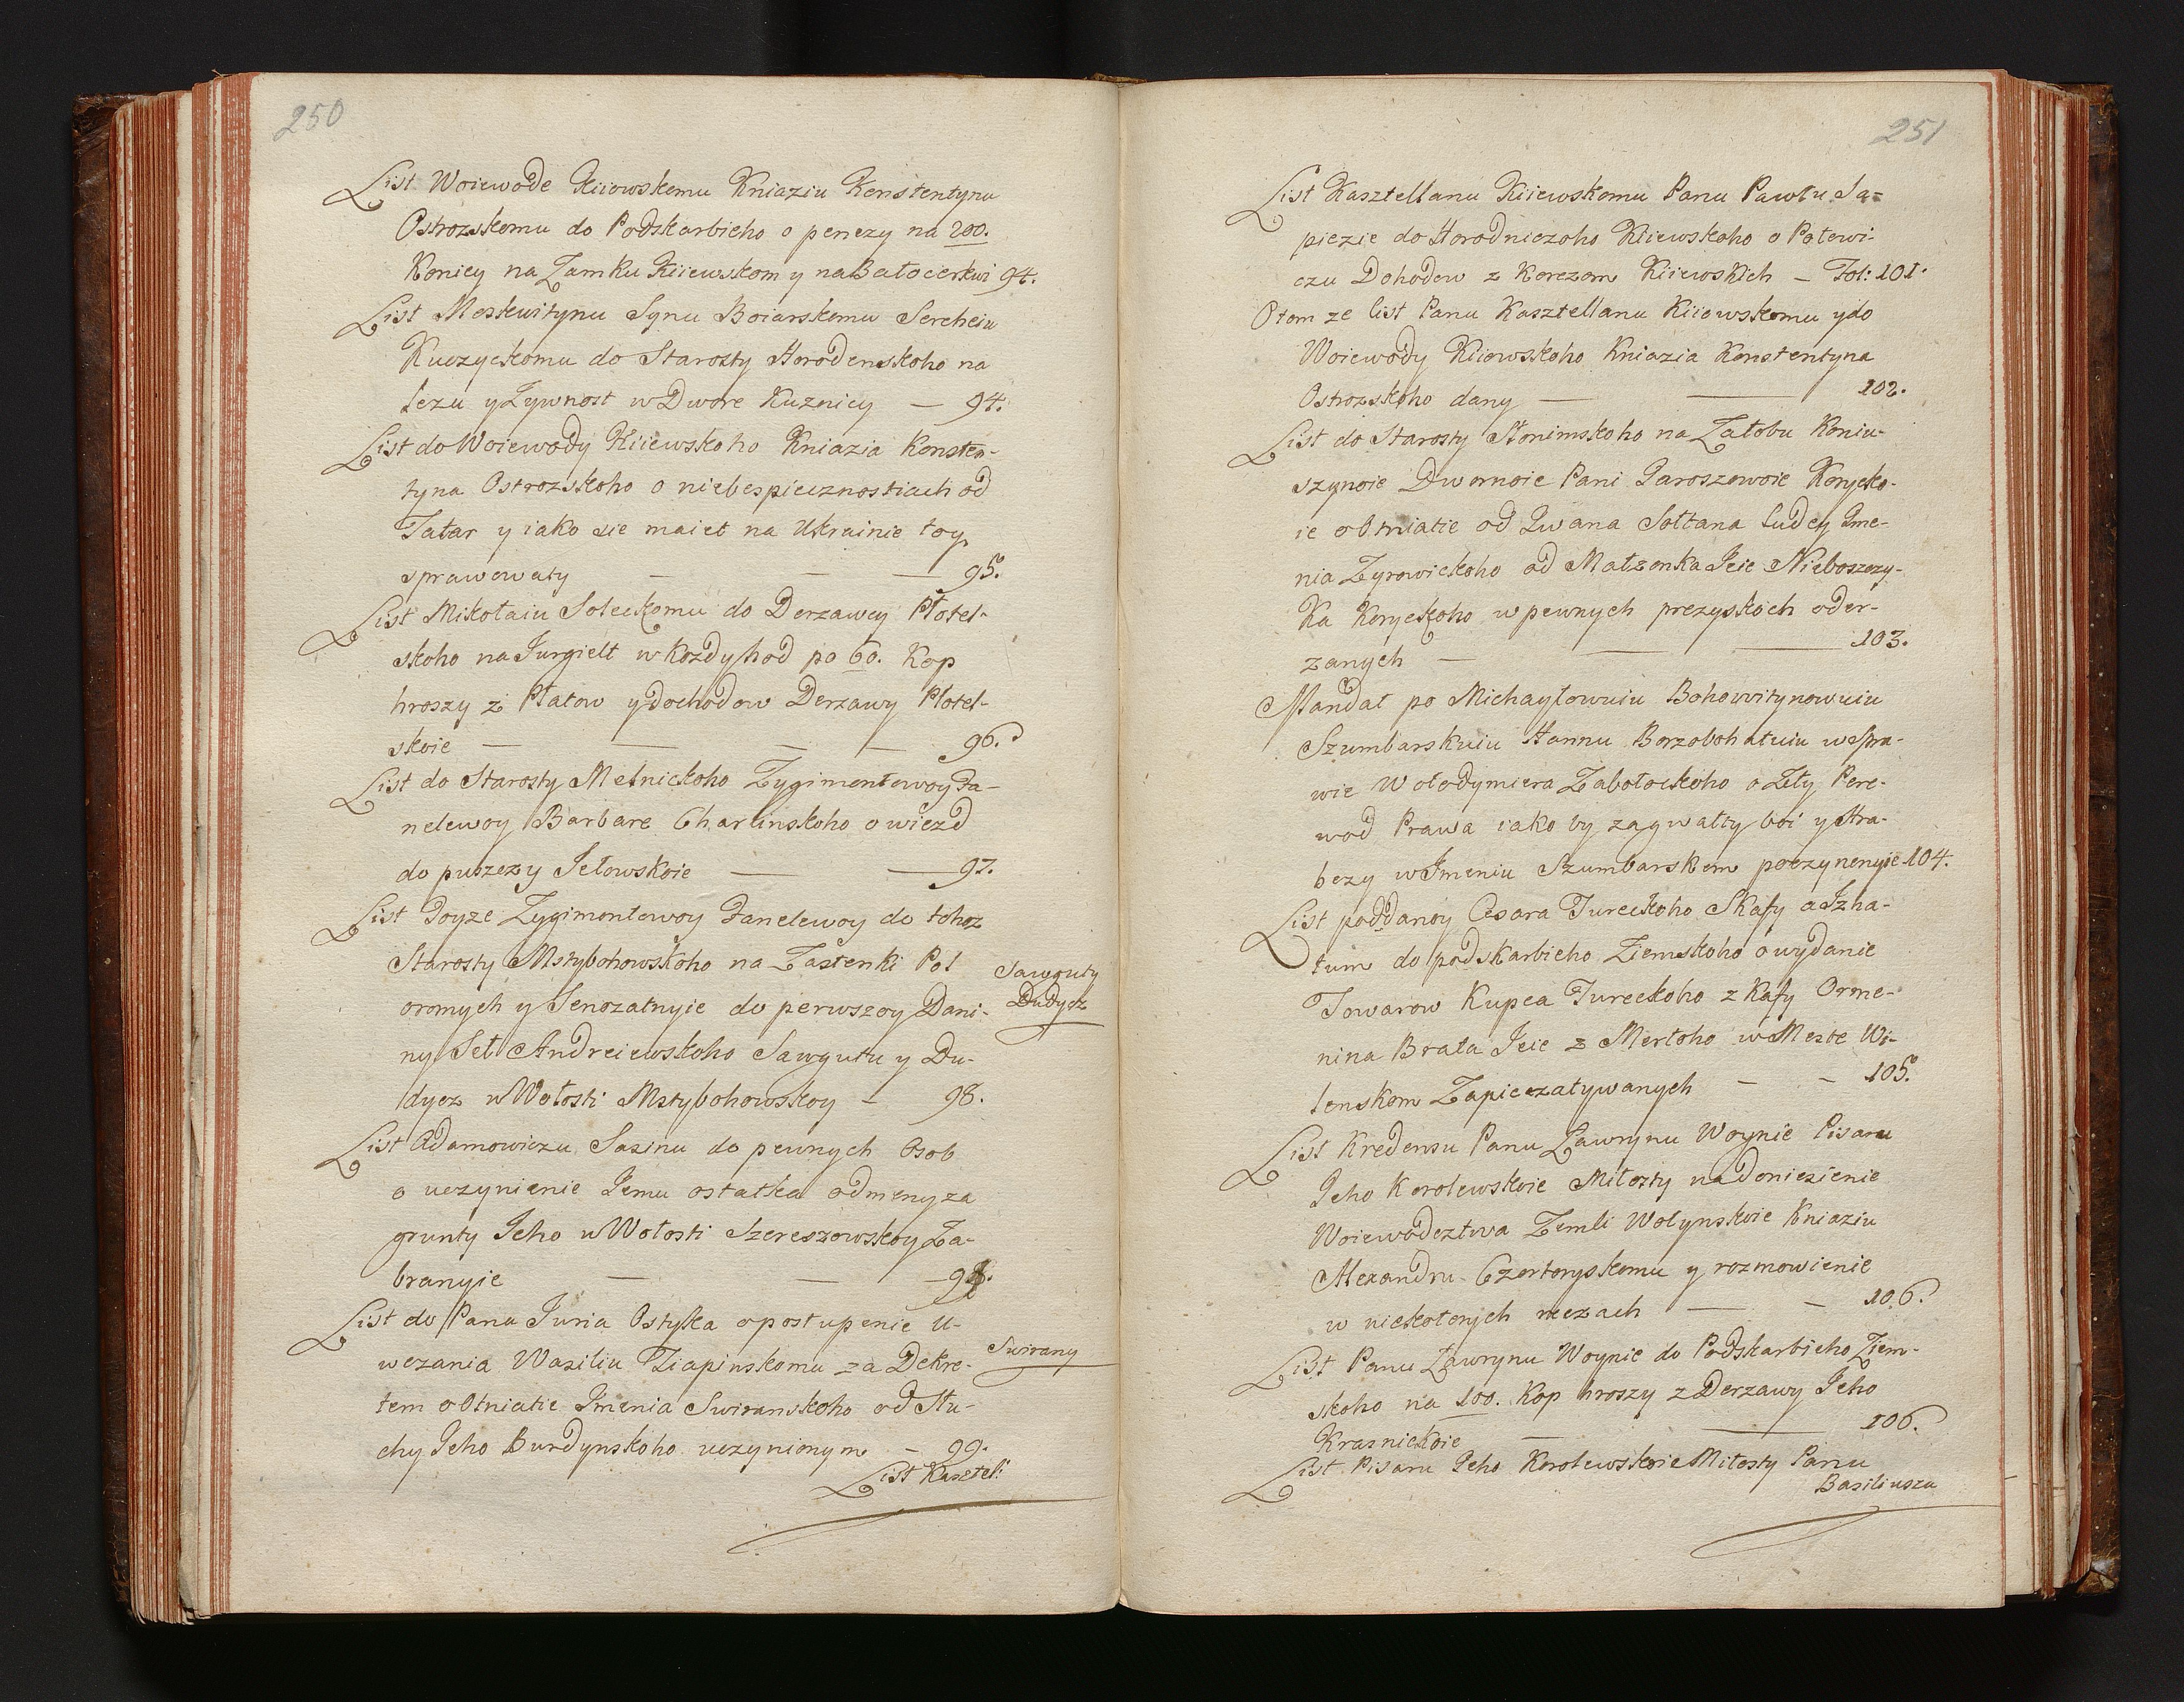 250
List Woiewode Kiiowskemu Kniaziu Konstentynu
Ostrozskomu do Podskarbieho o penezy na 200.
Koniey na Zamku Kiiewskom y na Bałocerkwi 94.
List Moskwitynu Synu Boiarskomu Serheiu
Kuczyckomu do Starosty Horodenskoho na
lezu y Zywnost w Dwore Kuznicy — 94.
List do Woiewody Kiiewskoho Kniazia Konsten-
tyna Ostrozskoho o niebespiecznostiach od
Tatar y iako sie maiet na Ukrainie toy
sprawowaty — — — 95.
List Mikołaiu Soleckomu do Derzawcy Płotel-
skoho na Jurgielt w kozdy hod po 60. Kop
hroszy z Płatow y dochodow Derzawy Płotel-
skoie — — — — 96.
List do Starosty Melnickoho Zygimontowoy Fa-
nelewoy Barbare Charlinskoho o wiezd
do puszczy Sełowskoie — — 97.
List Toyze Zygimontowoy Fanelewoy do tohoz
Starosty Mstybohowskoho na Zastenki Pol
oromych y Senozatnyie do perwszoy Dani-
ny Seł Andreiewskoho Sawgutu y Du-
dycz w Wołosti Mstybohowskoy — 98.
Sawguty
Dudycz
List Adamowiczu Sasinu do pewnych Osob
o uczynienie Jemu ostatka odmeny za
grunty Jeho w Wołosti Szereszowskoy Za-
branyie — — — 98.
List do Pana Juria Ostyka o postupenie U-
wezania Wasiliu Tiapinskomu za Dekre-
tem o Otniatie Imenia Swiranskoho od Słu-
chy Jeho Burdynskoho uczynionym — 99.
Swirany
List Kasztel:
251
List Kasztellanu Kiiewskomu Panu Pawłu Sa-
piezie do Horodniczoho Kiiewskoho o Połowi-
czu Dohodow z Korczom Kiiewskich — Fol: 101.
O tom ze list Panu Kasztellanu Kiiowskomu y do
Woiewody Kiiowskoho Kniazia Konstentyna
Ostrozskoho dany — — 102.
List do Starosty Słonimskoho na Załobu Koniu-
szynoie Dwornoie Pani Jaroszowoie Korycko-
ie o Otniatie od Iwana Sołtana ludey Ime-
nia Zyrowickoho od Małzonka Jeie Nieboszczy-
ka Koryckoho w pewnych prezyskoch oder-
zanych — — — 103.
Mandat po Michayłowuiu Bohowitynowuiu
Szumbarskuiu Hannu Borzobohatuiu w Spra-
wie Wołodymiera Zabołockoho o Zły Pere-
wod Prawa iako by za gwałty boi y Hra-
bezy w Imeniu Szumbarskom poczynenyie 104.
List poddanoy Cesara Tureckoho Skafy a Izha-
tum do podskarbieho Ziemskoho o wydanie
Towarow Kupca Tureckoho z Kafy Orme-
nina Brata Jeie z Merłoho w Meste Wi-
lenskom Zapieczatywanych — — 105.
List Kredensu Panu Ławrynu Woynie Pisaru
Jeho Korolewskoie Miłosty na doniesienie
Woiewodeztwa Zemli Wołynskoie Kniaziu
Alexandru Czortoryskomu y rozmowienie
w niekotorych reczach — — 106.
List Panu Ławrynu Woynie do Podskarbieho Ziem-
skoho na 100. Kop hroszy z Derzawy Jeho
Krasnickoie — — 106.
List Pisaru Jeho Korolewskoie Miłosty Panu
Basiliuszu